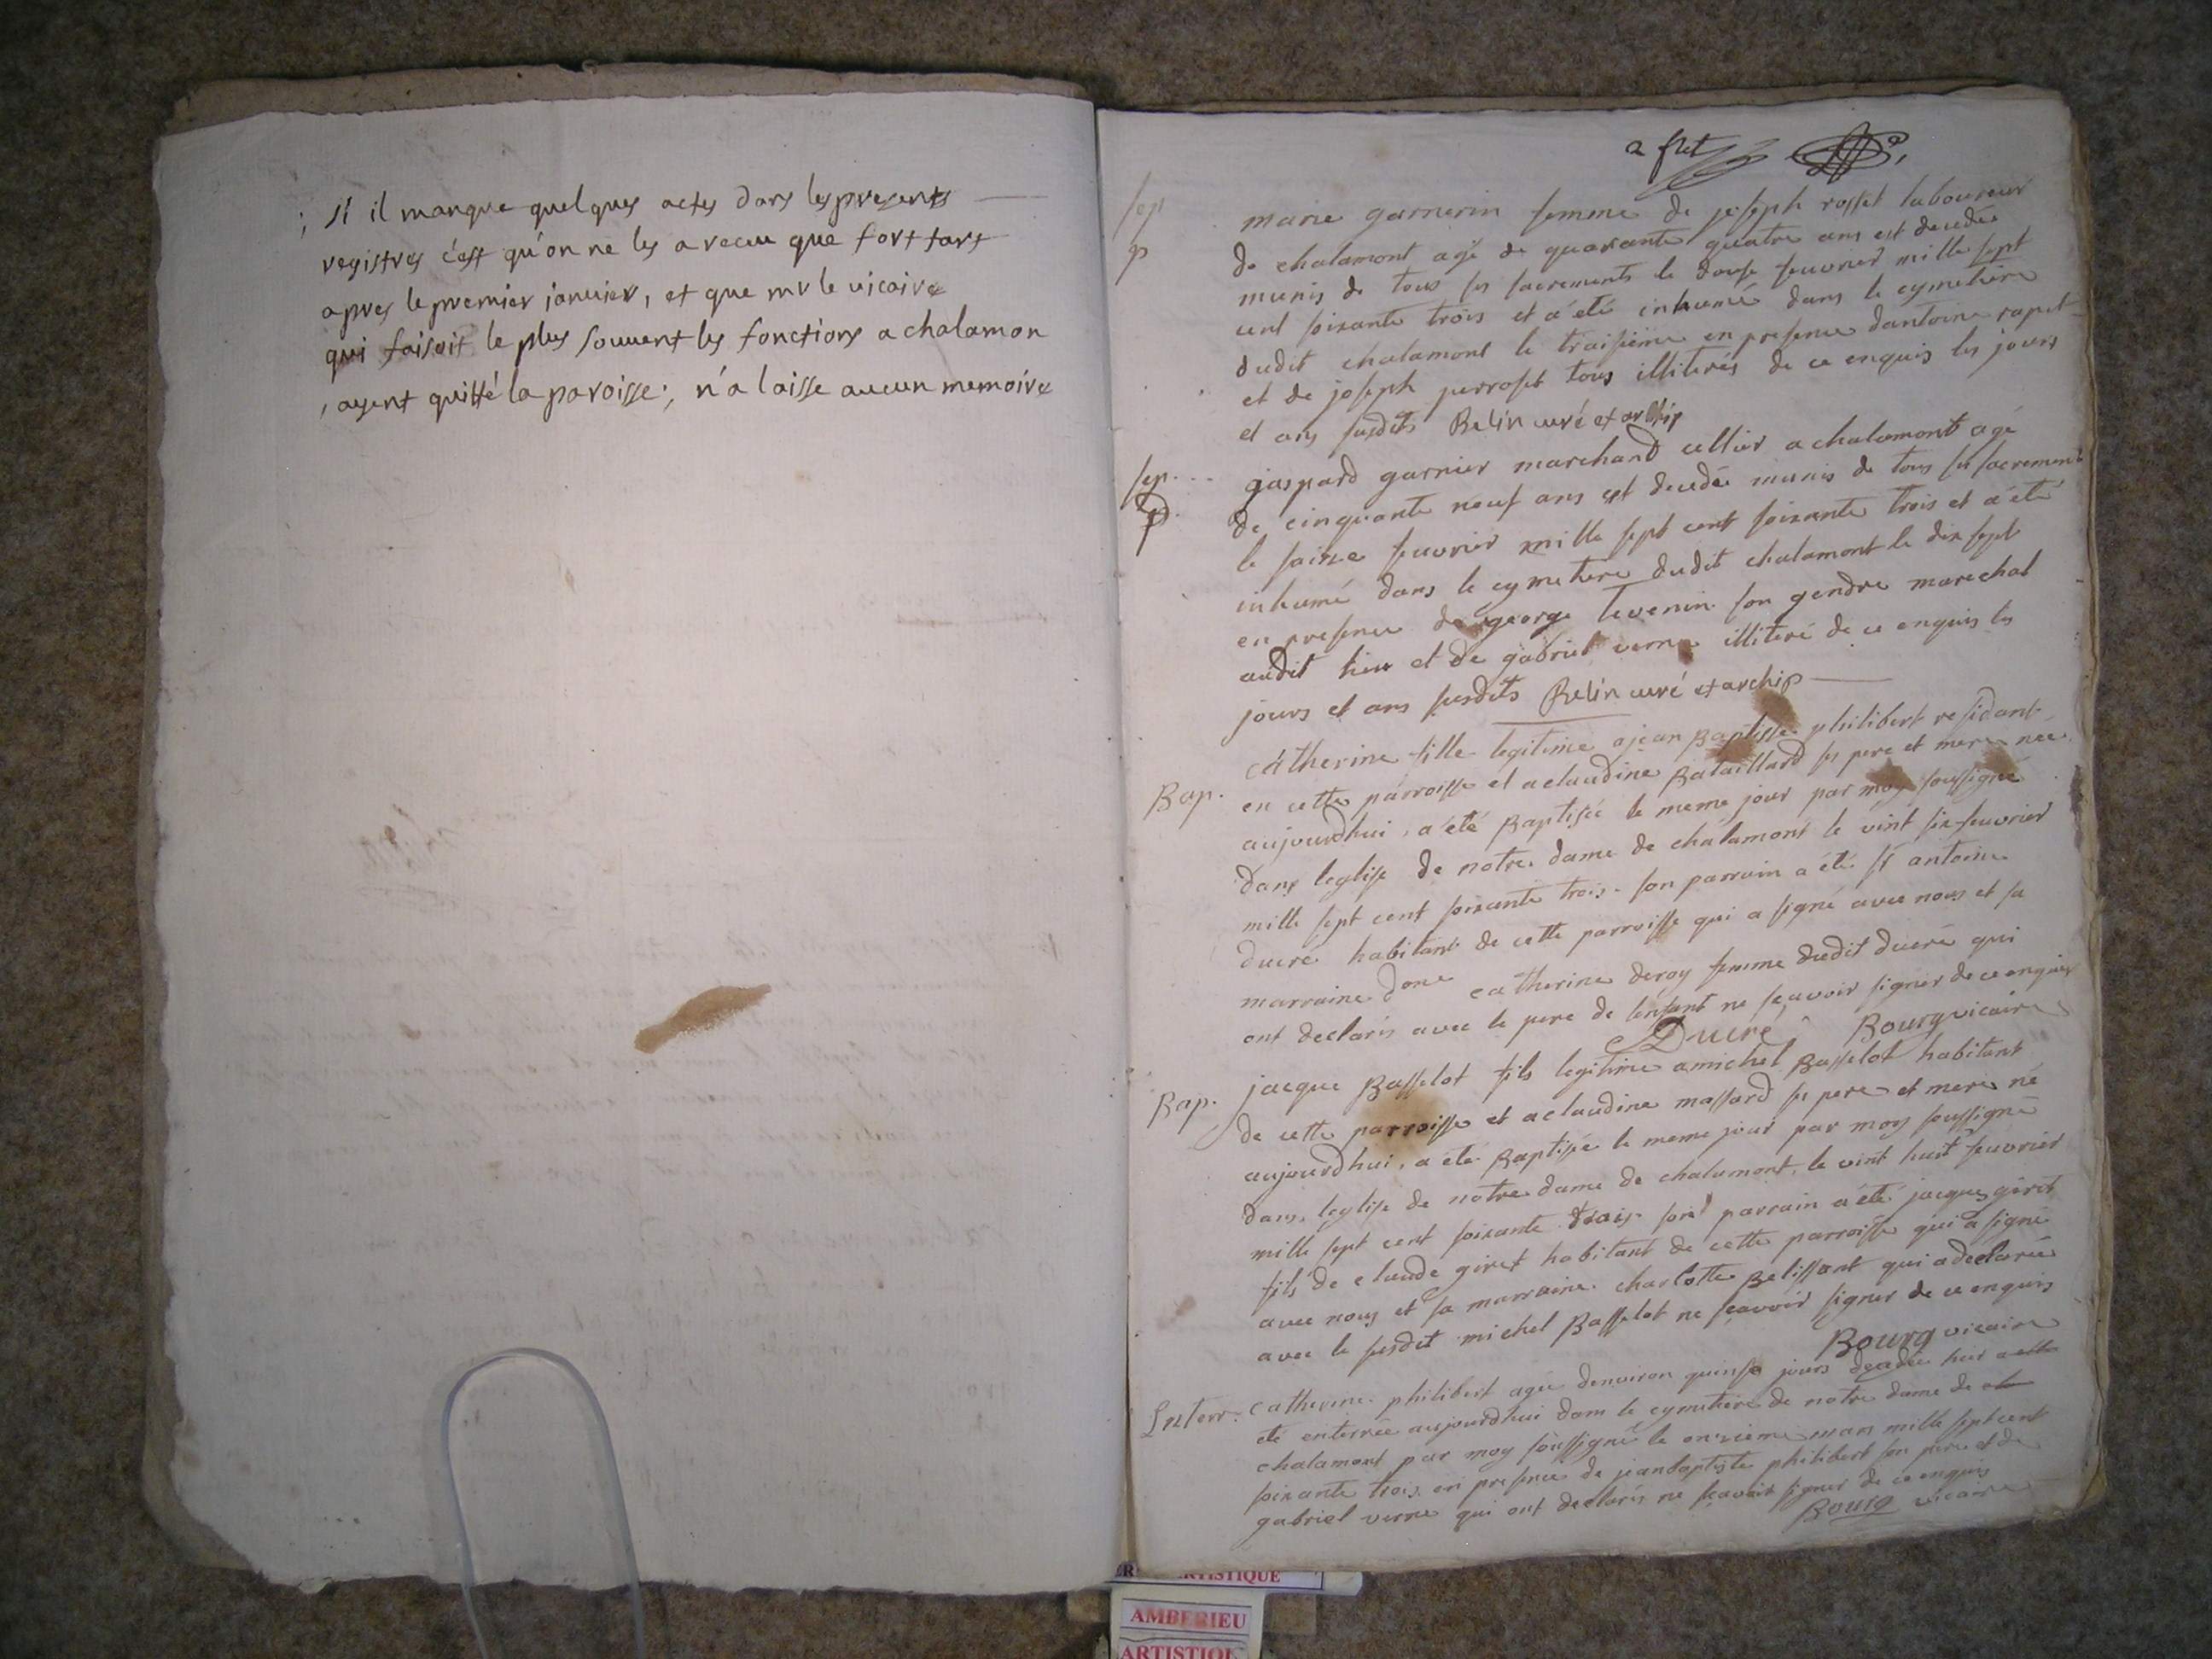 ; Si il manque quelques actes dans les presents
registres c'est qu'on ne les a receu que fort tart
apres le premier janvier, et que mr le vicaire
qui faisoit le plus souuent les fonctions a chalamon
, ayent quitté la paroisse; n'a laisse aucun memoire
2 flet
sep
p
marie garnerin femme de joseph rosset laboureur
de chalamont agé de quarante quatre ans est decedée
munis de tous ses sacrements le douse feuvrier mille sept
cent soixante trois et a été inhumé dans le cymetiere
dudit chalamont le traisieme en presence dantoine rapet
et de joseph perroset tous illiterés de ce enquis les jours
et ans susdits Belin curé et archip
sep.
p
gaspard garnier marchand cellier a chalamont agé
de cinquante neuf ans est decedée munis de tous ses sacrements
le saize feuvrier mille sept cent soixante trois et a été
inhumé dans le cymetiere dudit chalamont le dix sept
en presence de george tevenin son gendre marechal
audit lieu et de gabriel verne illiteré de ce enquis les
jours et ans susdits Belin curé et archip
Bap.
catherine fille legitime a jean Baptisse philibert residant
en cette parroisse et a claudine Bataillard ses pere et mere née
aujourdhui, a été Baptisée le meme jour par moy soussigné
dans leglise de notre dame de chalamont le vint six feuvrier
mille sept cent soixante trois. son parrain a été sr antoine
ducré habitant de cette parroisse qui a signé avec nous et sa
marraine done catherine deroy femme dudit ducré qui
ont declarés avec le pere de lenfant ne sçavoir signer de ce enquis
Ducré Bourg vicaire
Bap.
jacque Basselot fils legitime a michel Basselot habitant
de cette parroisse et a claudine massard ses pere et mere né
aujourdhui, a été Baptisée le meme jour par moy soussigné
dans leglise de notre dame de chalamont, le vint huit feuvrier
mille sept cent soixante trois. son parrain a été jacques giret
fils de claude giret habitant de cette parroisse qui a signé
avec nous et sa marraine charlotte Belissant qui a declarée
avec le susdit michel Basselot ne sçavoir signer de ce enquis
Bourg vicaire
Enterr.
catherine philibert agée denviron quinse jours decedée hier a
eté enterrée aujourdhui dans le cymetiere de notre dame de
chalamont par moy soussigné le onzieme mars mille sept cent
soixante trois en presence de jean baptiste philibert son pere et de
gabriel verne qui ont declarés ne sçavoir signer de ce enquis
Bourg vicaire
ARTISTIQUE
AMBERIEU